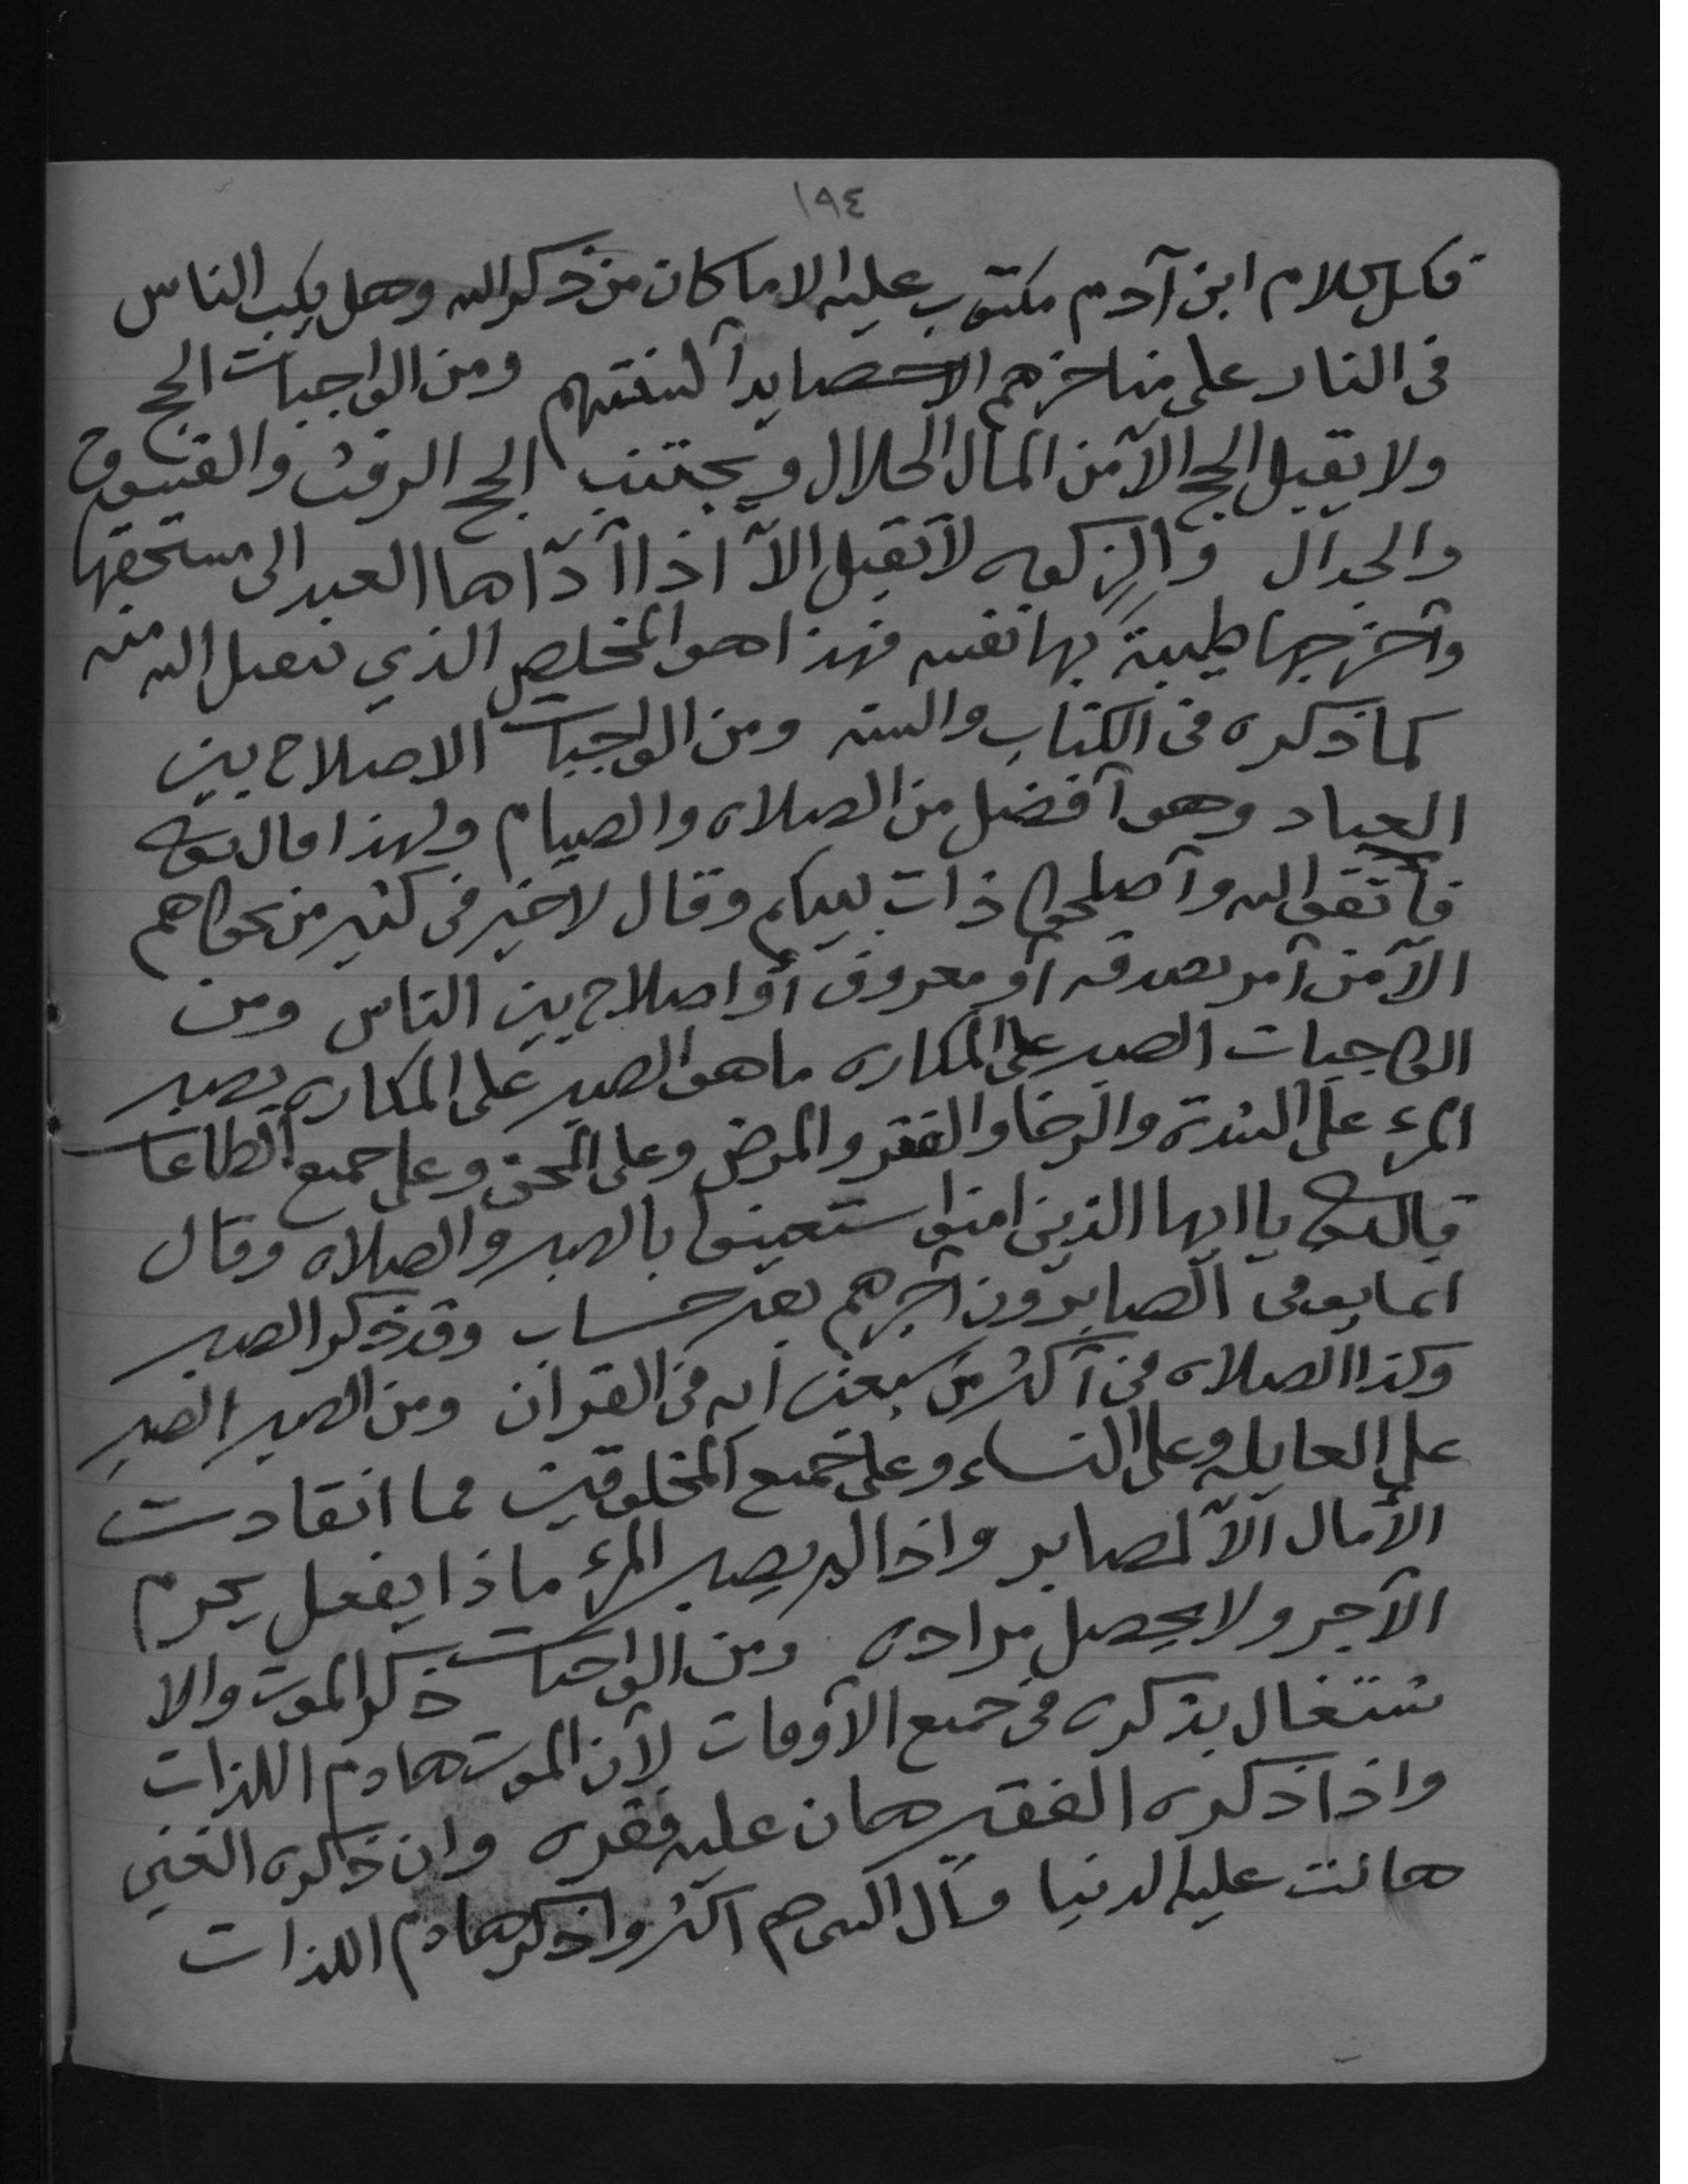 ١٩٤
فكل كلام ابن آدم مكتوب عليه الا ما كان من ذكر الله وهل يكب الناس
في النار على مناخرهم الا حصايد آلسنتهم ومن الواجبات الحج
ولا يقبل الحج الآ من المال الحلال ويجتنب الحج الرفث والفسوق
والجدال والزكوه لا تقبل الآ اذا آدّاها العبد الى مستحقها
وآخرجها طيبةً بها نفسه فهذا هو المخلص الذي يتقبل الله منه
كما ذكره في الكتاب والسنه ومن الواجبات الاصلاح بين
العباد وهو آفضل من الصلاه والصيام ولهذا قال تعالى
فآتقوا الله وآصلحوا ذات بينكم وقال لا خير في كثير من نجواهم
الآ من آمر بصدقه آو معروف آو اصلاح بين الناس ومن
الواجبات الصبر على المكاره ما هو الصبر على المكاره يصبر
المرء على الشدة والرخا والفقر والمرض وعلى المحن وعلى جميع الطاعات
قال تعالى يا ايها الذين امنوا ستعينوا بالصبر والصلاه وقال
انما يوفى الصابرون آجرهم بغير حساب وقد ذكر الصبر
وكذا الصلاه في آكثر من سبعين آيه في القران ومن الصبر الصبر
على العايله وعلى النساء وعلى جميع المخلوقين فما انقادت
الآمال الآ لصابر واذا لم يصبر المرء ماذا يفعل يحرم
الآجر ولا يحصل مراده ومن الواجبات ذكر الموت والا
شتغال بذكره في جميع الآوقات لآن الموت هادم اللذات
واذا ذكره الفقير هان عليه فقره وان ذكره الغني
هانت عليه الدنيا وقال النبي صم اكثروا ذكر هادم اللذات